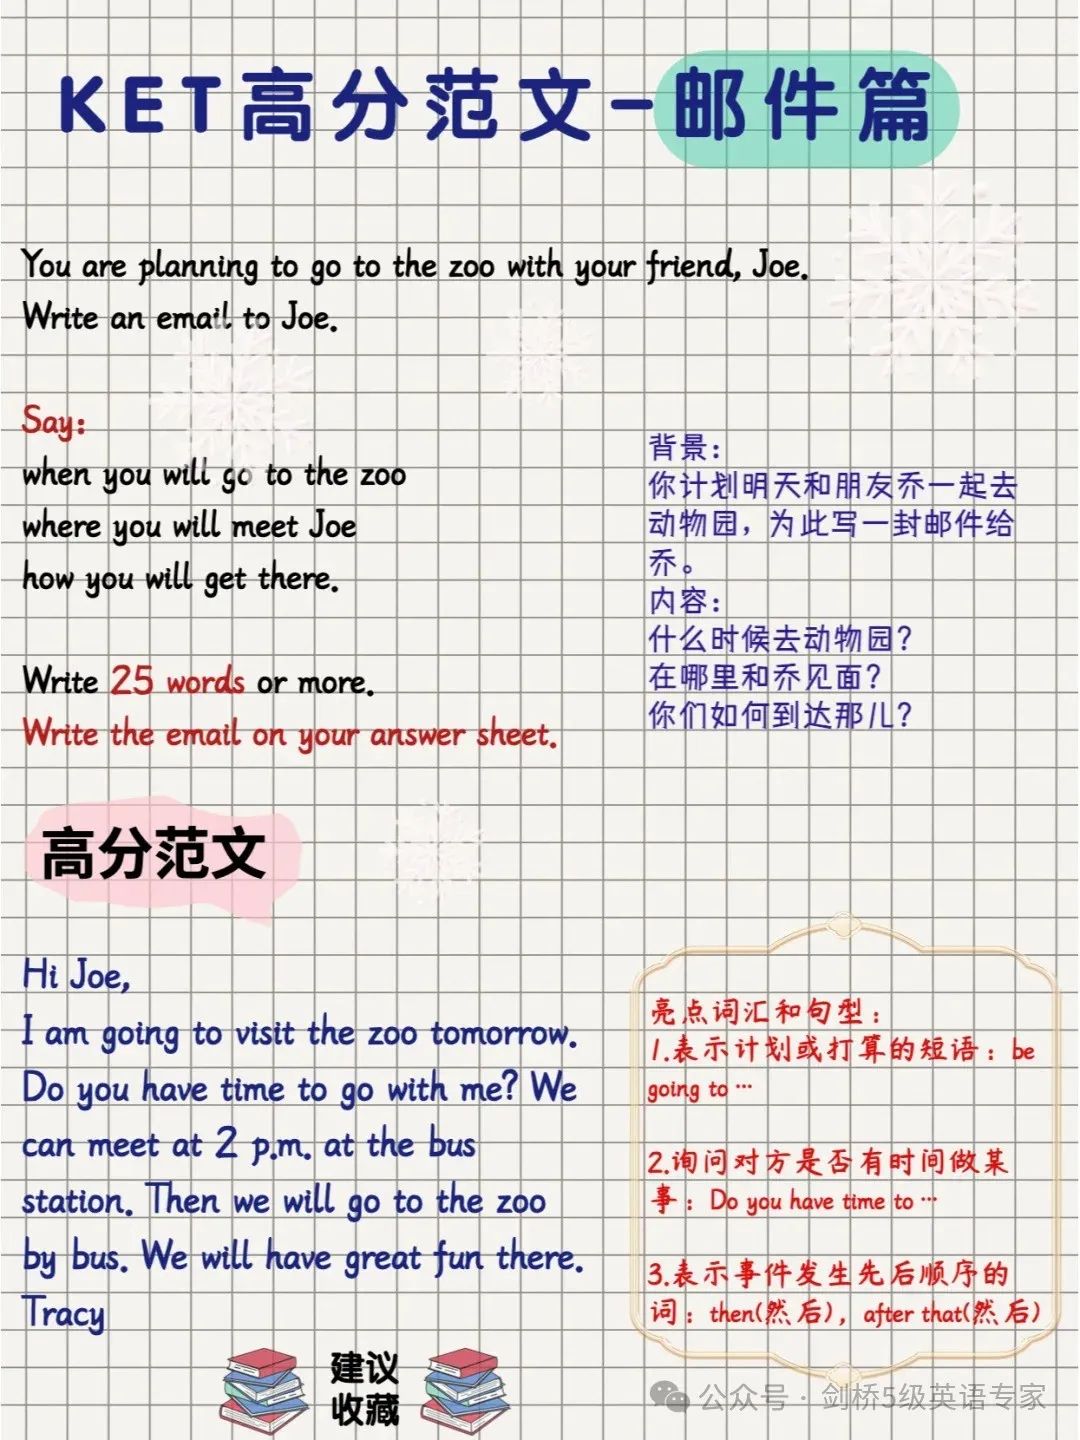 KET高分范文-邮件篇
You are planning to go to the zoo with your friend, Joe.
Write an email to Joe.
Say:
when you will go to the zoo
where you will meet Joe
how you will get there.
Write 25 words or more.
Write the email on your answer sheet.
背景：
你计划明天和朋友乔一起去
动物园，为此写一封邮件给
乔。
内容：
什么时候去动物园？
在哪里和乔见面？
你们如何到达那儿？
高分范文
Hi Joe,
I am going to visit the zoo tomorrow.
Do you have time to go with me? We
can meet at 2 p.m. at the bus
station. Then we will go to the zoo
by bus. We will have great fun there.
Tracy
亮点词汇和句型：
1.表示计划或打算的短语：be
going to …
2.询问对方是否有时间做某
事：Do you have time to …
3.表示事件发生先后顺序的
词：then(然后)，after that(然后)
建议
收藏
公众号·剑桥5级英语专家